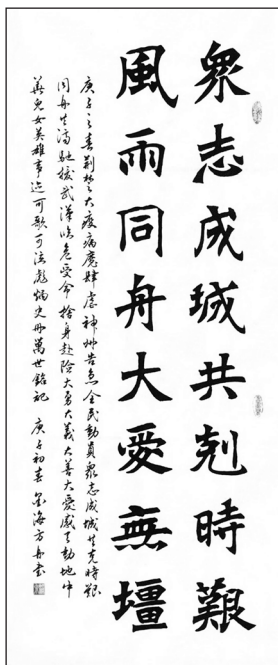 眾志成城共剋時艱
風雨同舟大愛無壃
庚子之春荆楚大疫病魔肆虐神州告急全民動員眾志成城共克時艱
同舟共濟馳援武漢臨危受命捨身赴險大勇大義大善大愛感天動地中
華兒女英雄事迹可歌可泣彪炳史册萬世銘記 庚子初春 墨海方舟書